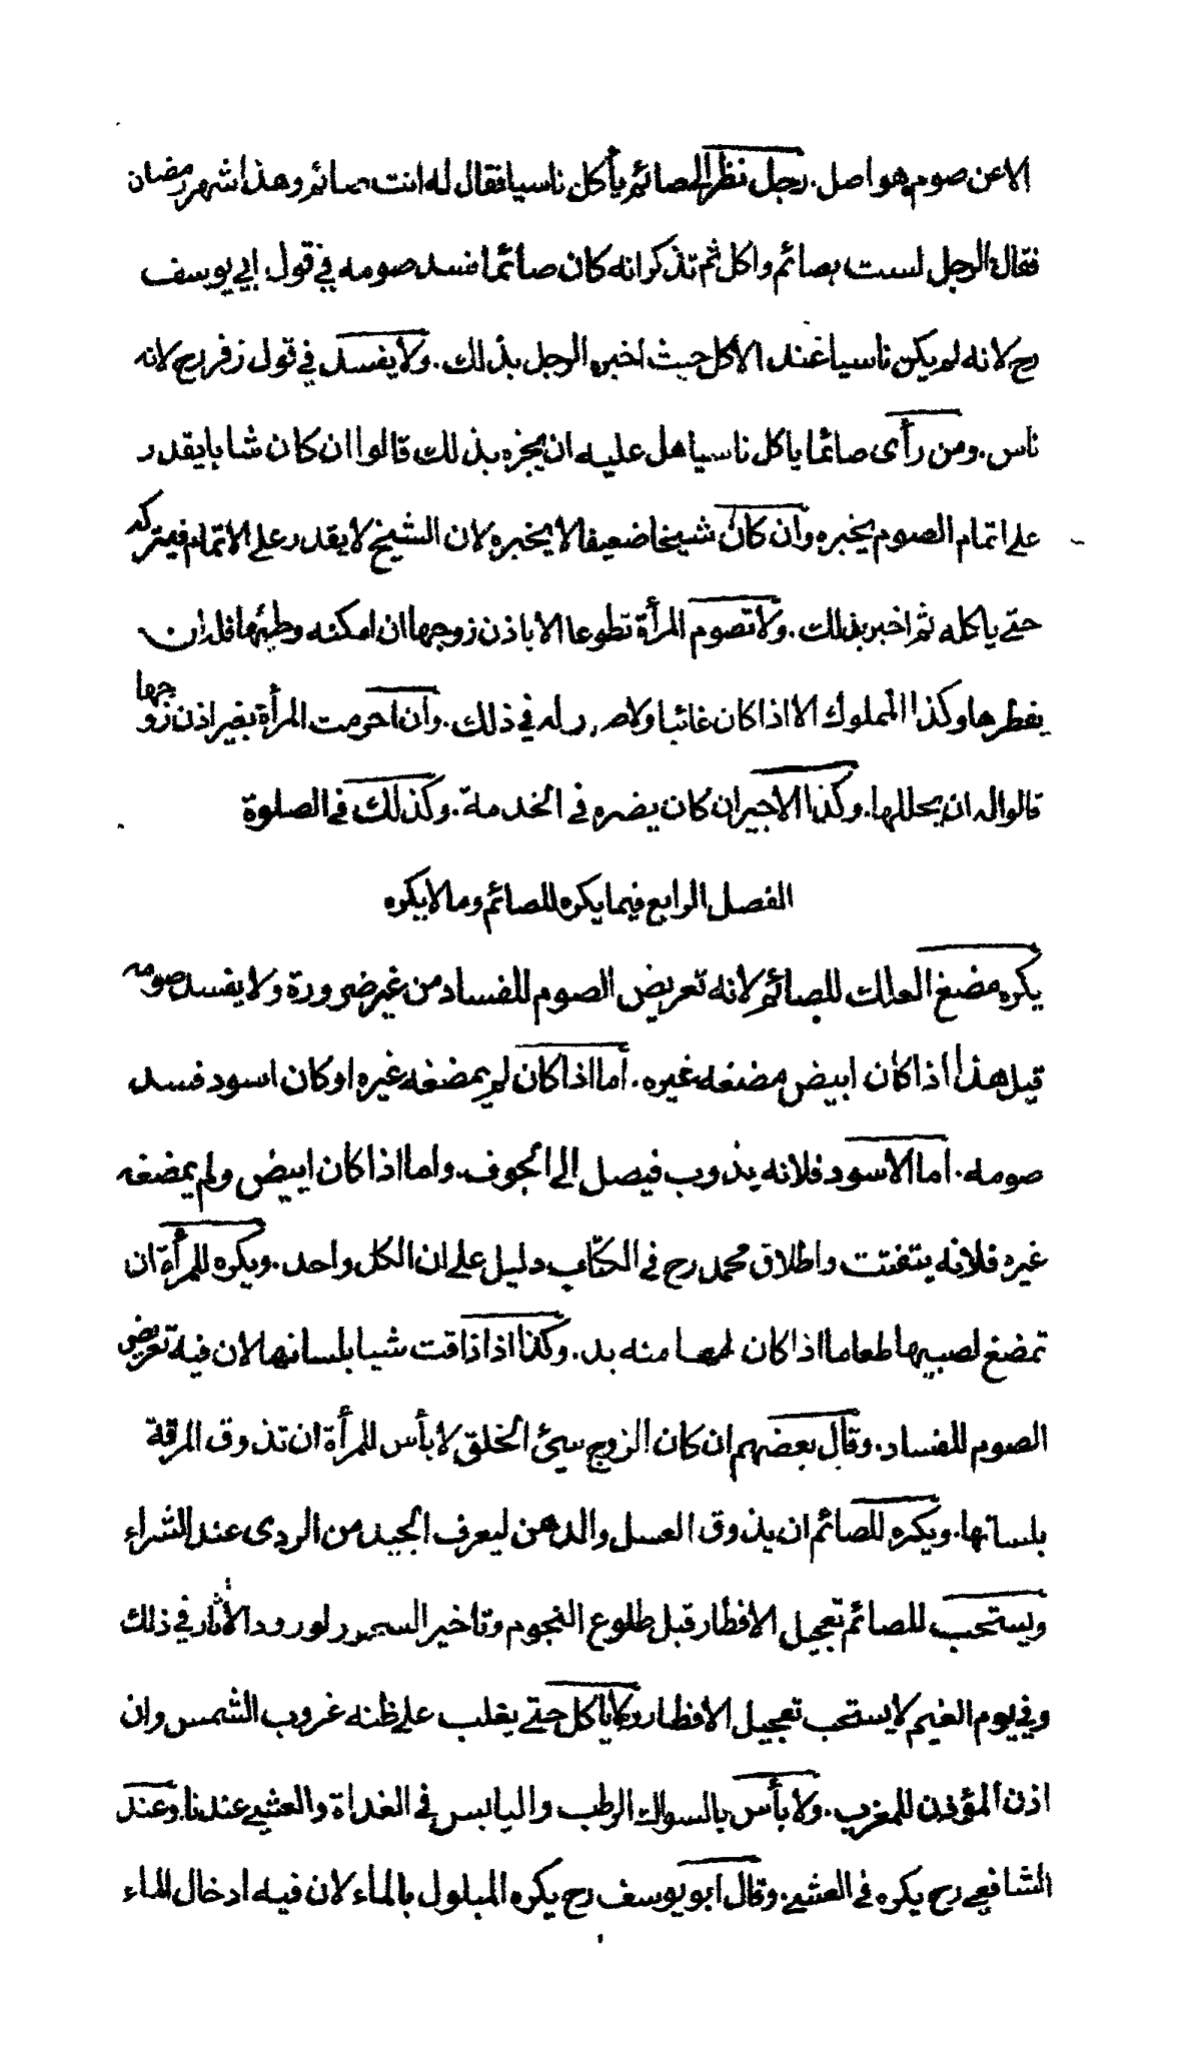 الا عن صوم هو اصل. رجل نظر الى صائم يأكل ناسيا فقال له انت صائم وهذا شهر رمضان
فقال الرجل لست بصائم واكل ثم تذكر انه كان صائما فسد صومه في قول ابي يوسف
رح لانه لم يكن ناسيا عند الاكل حيث اخبره الرجل بذلك. ولا يفسد في قول زفر رح لانه
ناس. ومن رأى صائما ياكل ناسيا هل عليه ان يخبره بذلك قالوا ان كان شابا يقدر
على اتمام الصوم يخبره وان كان شيخا ضعيفا لا يخبره لان الشيخ لا يقدر على الاتمام فيتركه
حتى ياكله ثم اخبر بذلك. ولا تصوم المرأة تطوعا الا باذن زوجها ان امكنه وطيئها فله ان
يفطرها وكذا المملوك الا اذا كان غائبا ولا ضرر له في ذلك. وان احرمت المرأة بغير اذن زوجها
قالوا له ان يحللها. وكذا الاجير ان كان يضره في الخدمة. وكذلك في الصلوة
الفصل الرابع فيما يكره للصائم وما لا يكره
يكره مضغ العلك للصائم لانه تعريض الصوم للفساد من غير ضرورة ولا يفسد صومه
قيل هذا اذا كان ابيض مضغه غيره. اما اذا كان لم يمضغه غيره او كان اسود فسد
صومه. اما الاسود فلانه يذوب فيصل الى الجوف. واما اذا كان ابيض ولم يمضغه
غيره فلانه يتفتت واطلاق محمد رح في الكتاب دليل على ان الكل واحد. ويكره للمرأة ان
تمضغ لصبيها طعاما اذا كان لها منه بد. وكذا اذا ذاقت شيا بلسانها لان فيه تعريض
الصوم للفساد. وقال بعضهم ان كان الزوج سيئ الخلق لا بأس للمرأة ان تذوق المرقة
بلسانها. ويكره للصائم ان يذوق العسل والدهن ليعرف الجيد من الردى عند الشراء
ويستحب للصائم تعجيل الافطار قبل طلوع النجوم وتاخير السحور لورود الأثار في ذلك
وفي يوم الغيم لا يستحب تعجيل الافطار ولا ياكل حتى يغلب على ظنه غروب الشمس وان
اذن المؤذن للمغرب. ولا بأس بالسواك الرطب واليابس في الغداة والعشي عندنا. وعند
الشافعي رح يكره في العشي. وقال ابو يوسف رح يكره المبلول بالماء لان فيه ادخال الماء